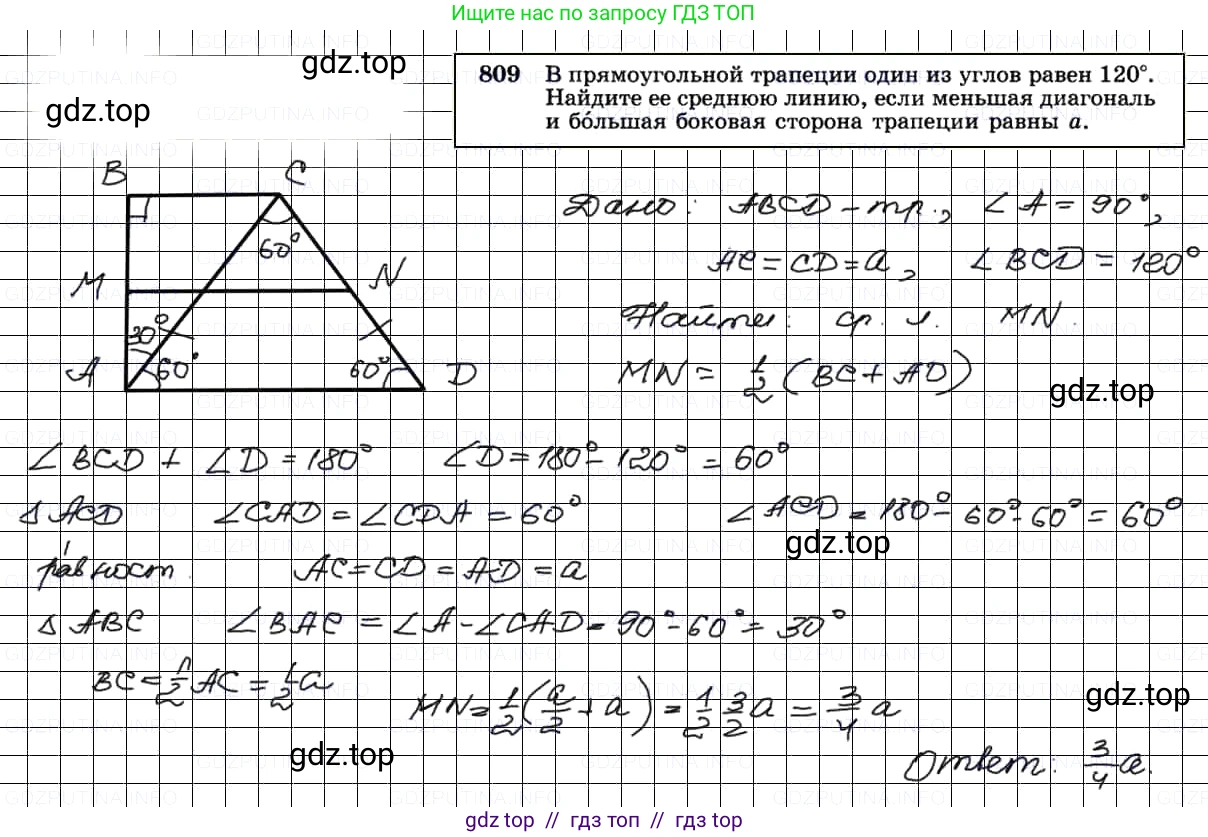 Ищите нас по запросу ГДЗ ТОП
gdz.top
gdz.top
809 В прямоугольной трапеции один из углов равен 120°.
Найдите ее среднюю линию, если меньшая диагональ
и бо́льшая боковая сторона трапеции равны a.
B C
60°
M N
30°
A 60° 60° D
Дано: ABCD – тр., ∠A = 90°,
AC = CD = a, ∠BCD = 120°
Найти: ср. л. MN.
MN = 1/2 (BC + AD)
gdz.top
∠BCD + ∠D = 180° ∠D = 180° – 120° = 60°
△ACD ∠CAD = ∠CDA = 60° ∠ACD = 180° – 60° – 60° = 60°
gdz.top
равност. AC = CD = AD = a
△ABC ∠BAC = ∠A – ∠CAD = 90° – 60° = 30°
BC = 1/2 AC = 1/2 a
MN = 1/2 (a/2 + a) = 1/2 3/2 a = 3/4 a
gdz.top
gdz.top
Ответ: 3/4 a.
gdz.top // гдз топ // гдз top